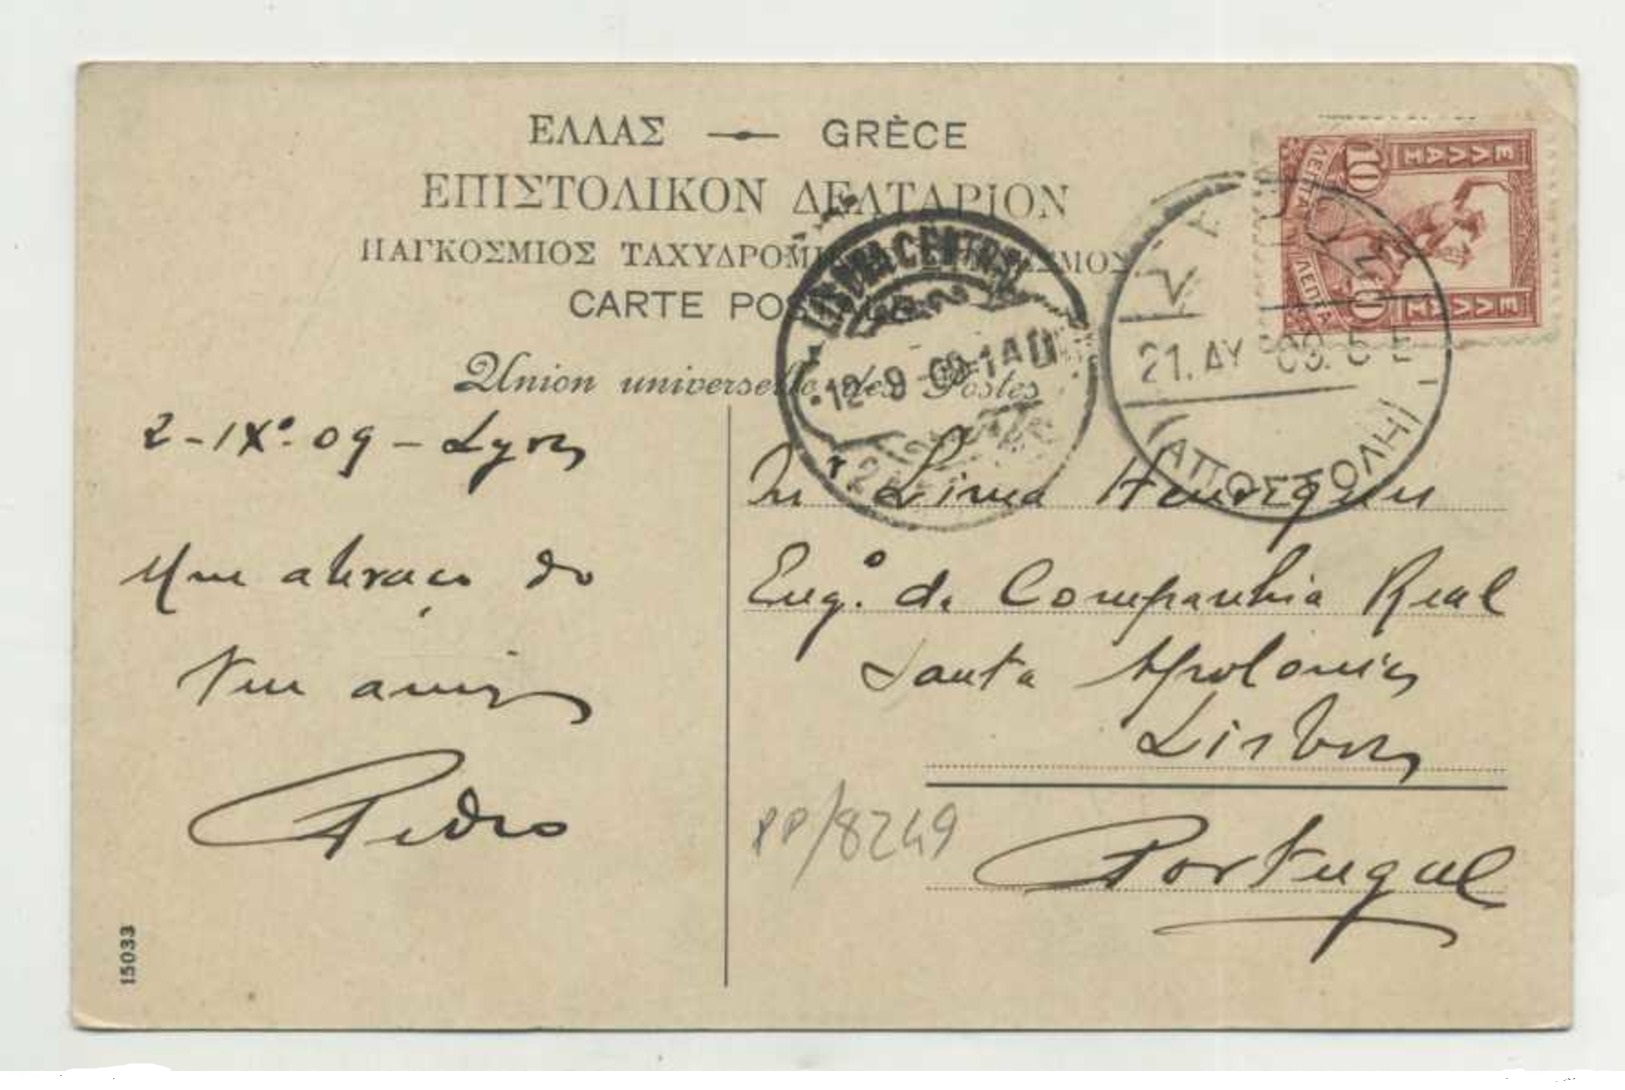 ΕΛΛΑΣ — GRÈCE
ΕΠΙΣΤΟΛΙΚΟΝ ΔΕΛΤΑΡΙΟΝ
ΠΑΓΚΟΣΜΙΟΣ ΤΑΧΥΔΡΟΜ ΣΜΟΣ
CARTE POSTALE
Union universelle des Postes
ΕΛΛΑΣ
10
ΛΕΠΤΑ
10
ΛΕΠΤΑ
ΕΛΛΑΣ
LISBOA CENTRAL
12-9-09-1
21. ΑΥ 09. 5 Ε
ΑΠΟΣΤΟΛΗ
2-IXº-09 - Lyon
Um abraço do
teu amigo
Pedro
Lima Henriques
Engº. da Companhia Real
Santa Apolonia
Lisboa
Portugal
PP/8249
15033